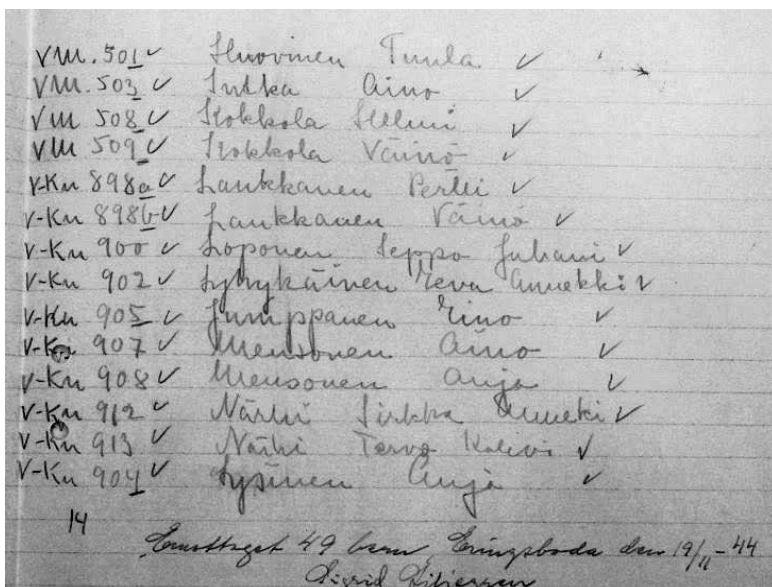 VM. 501 ✓ Huovinen Tuula ✓
VM. 503 ✓ Jutka Aino ✓
VM 508 ✓ Kokkola Helmi ✓
VM 509 ✓ Kokkola Väinö ✓
V-Kn 898a ✓ Laukkanen Pertti ✓
V-Kn 898b ✓ Laukkanen Väinö ✓
V-Kn 900 ✓ Loponen Seppo Juhani ✓
V-Kn 902 ✓ Lyhykäinen Eeva Annekki ✓
V-Kn 905 ✓ Jumppanen Eino ✓
V-Kn 907 ✓ Mensonen Aino ✓
V-Kn 908 ✓ Mensonen Anja ✓
V-Kn 912 ✓ Närhi Sirkka Anneki ✓
V-Kn 913 ✓ Närhi Tervo Kalevi ✓
V-Kn 904 ✓ Lysinen Anja ✓
14
49 barn, Eringsboda den 19/11-44